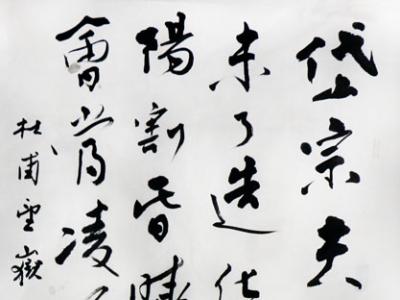 岱宗夫
未了造化
陽割昏曉
會當凌
杜甫望嶽